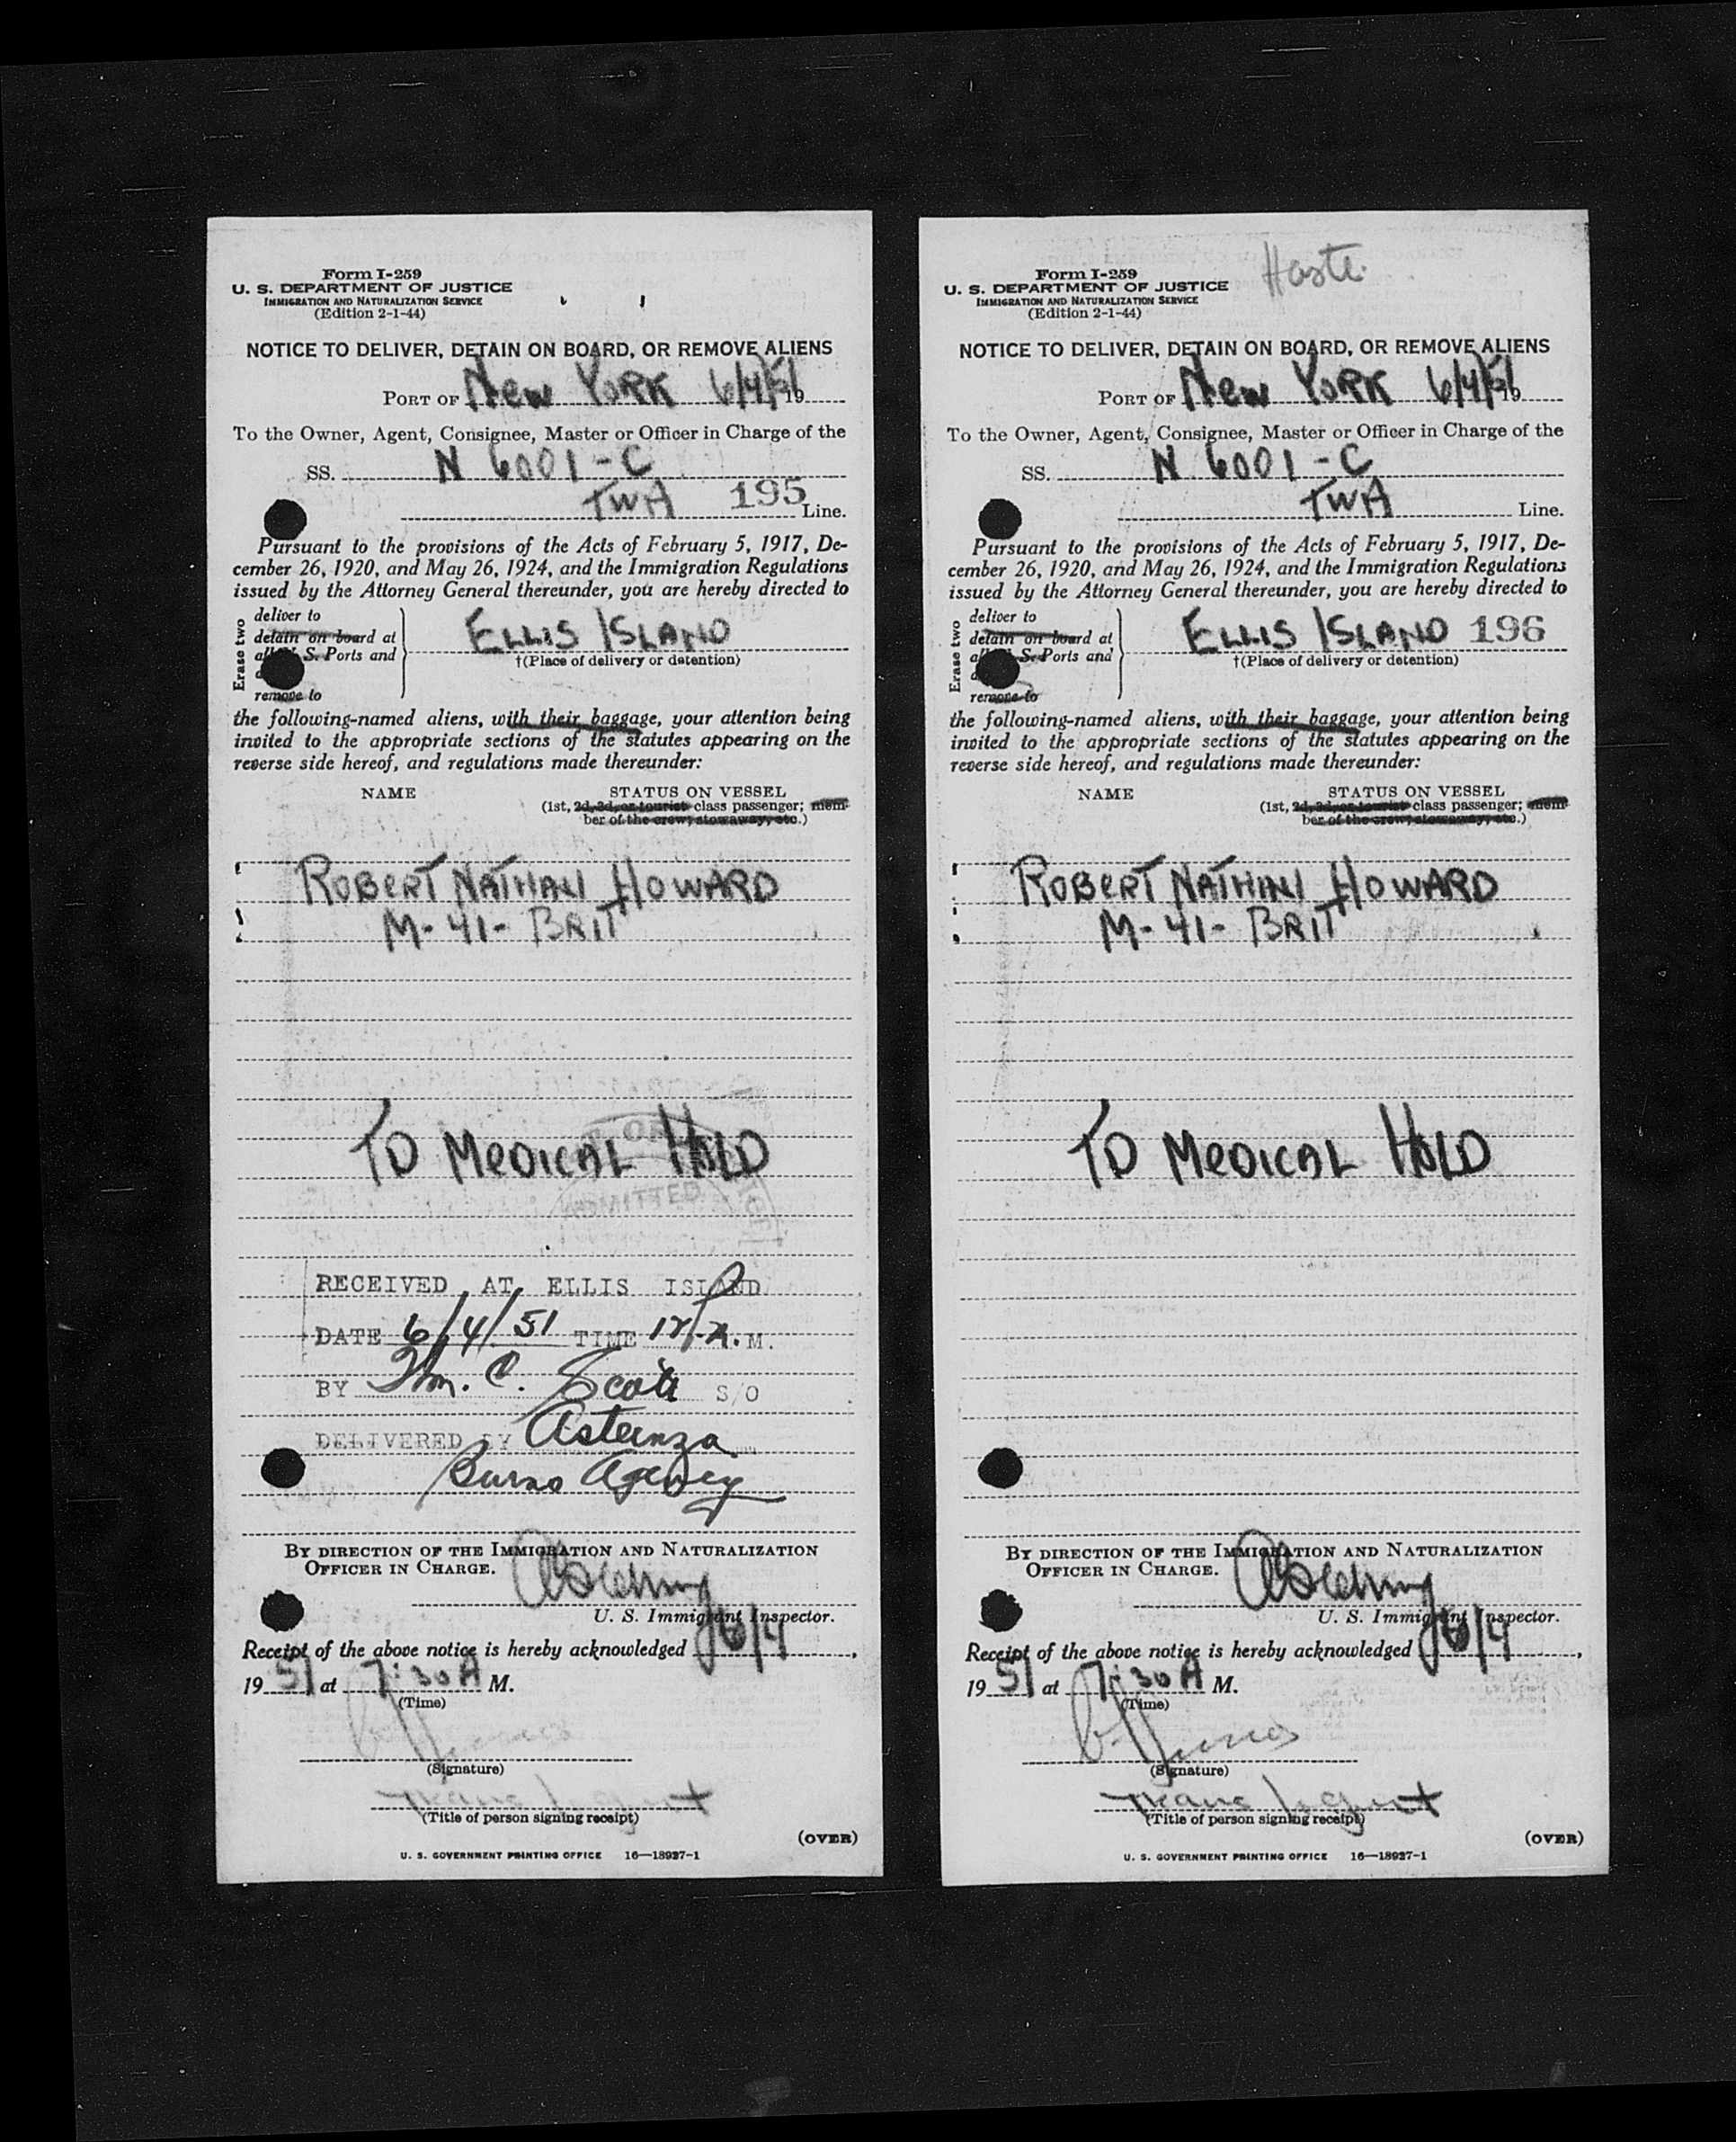 Form I-259
U. S. DEPARTMENT OF JUSTICE
IMMIGRATION AND NATURALIZATION SERVICE
(Edition 2-1-44)
NOTICE TO DELIVER, DETAIN ON BOARD, OR REMOVE ALIENS
PORT OF New York 6/4/51 19
To the Owner, Agent, Consignee, Master or Officer in Charge of the
SS. N 6001-C
TWA 195 Line.
Pursuant to the provisions of the Acts of February 5, 1917, De-
cember 26, 1920, and May 26, 1924, and the Immigration Regulations
issued by the Attorney General thereunder, you are hereby directed to
Erase two
deliver to
detain on board at
S. Ports and
remove to
ELLIS ISLAND
†(Place of delivery or detention)
the following-named aliens, with their baggage, your attention being
invited to the appropriate sections of the statutes appearing on the
reverse side hereof, and regulations made thereunder:
NAME STATUS ON VESSEL
(1st, 2d, 3d, or tourist class passenger; mem-
ber of the crew, stowaway, etc.)
ROBERT NATHAN HOWARD
M-41-BRIT
TO MEDICAL HOLD
ADMITTED
RECEIVED AT ELLIS ISLAND
DATE 6/4/51 TIME M.
BY Wm. C. Scott S/O
DELIVERED BY
Burns Agency
BY DIRECTION OF THE IMMIGRATION AND NATURALIZATION
OFFICER IN CHARGE.
U. S. Immigrant Inspector.
Receipt of the above notice is hereby acknowledged 6/4,
1951 at 7:30 A M.
(Time)
(Signature)
(Title of person signing receipt)
(OVER)
U. S. GOVERNMENT PRINTING OFFICE 16—18937-1
Form I-259
U. S. DEPARTMENT OF JUSTICE
IMMIGRATION AND NATURALIZATION SERVICE
(Edition 2-1-44)
Haste.
NOTICE TO DELIVER, DETAIN ON BOARD, OR REMOVE ALIENS
PORT OF New York 6/4/51 19
To the Owner, Agent, Consignee, Master or Officer in Charge of the
SS. N 6001-C
TWA Line.
Pursuant to the provisions of the Acts of February 5, 1917, De-
cember 26, 1920, and May 26, 1924, and the Immigration Regulations
issued by the Attorney General thereunder, you are hereby directed to
Erase two
deliver to
detain on board at
S. Ports and
remove to
ELLIS ISLAND 196
†(Place of delivery or detention)
the following-named aliens, with their baggage, your attention being
invited to the appropriate sections of the statutes appearing on the
reverse side hereof, and regulations made thereunder:
NAME STATUS ON VESSEL
(1st, 2d, 3d, or tourist class passenger; mem-
ber of the crew, stowaway, etc.)
ROBERT NATHAN HOWARD
M-41-BRIT
TO MEDICAL HOLD
BY DIRECTION OF THE IMMIGRATION AND NATURALIZATION
OFFICER IN CHARGE.
U. S. Immigrant Inspector.
Receipt of the above notice is hereby acknowledged 6/4,
1951 at 7:30 A M.
(Time)
(Signature)
(Title of person signing receipt)
(OVER)
U. S. GOVERNMENT PRINTING OFFICE 16—18937-1